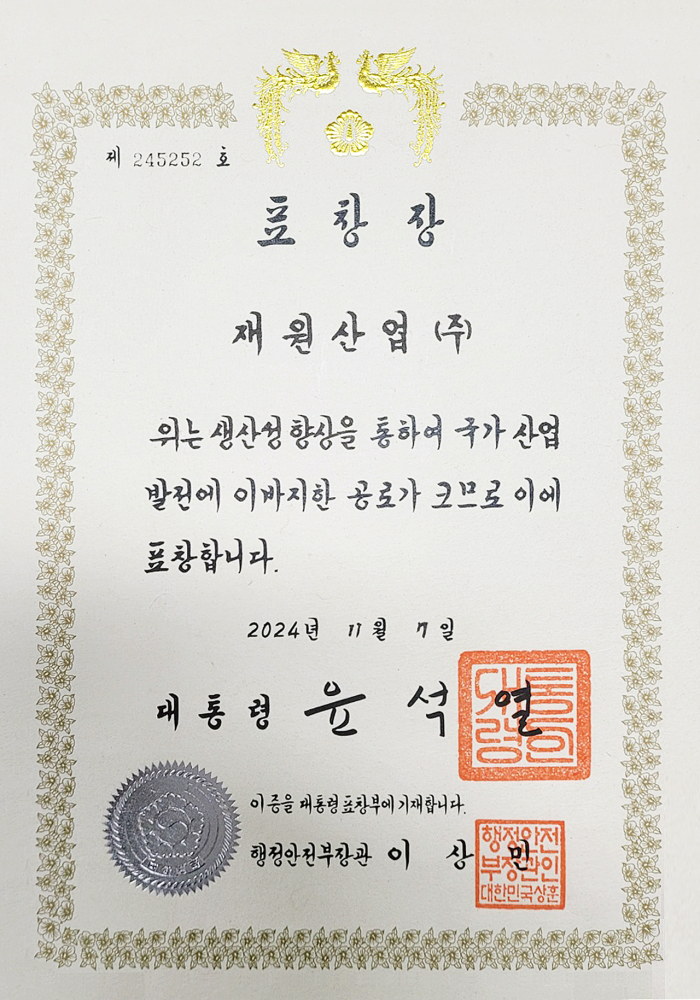 제 245252 호
표 창 장
재 원 산 업 (주)
위는 생산성 향상을 통하여 국가 산업
발전에 이바지한 공로가 크므로 이에
표창합니다.
2024년 11월 7일
대 통 령 윤 석 열
대통
령의
이 증을 대통령표창부에 기재합니다.
행정안전부장관 이 상 민
행정안전
부장관인
대한민국상훈